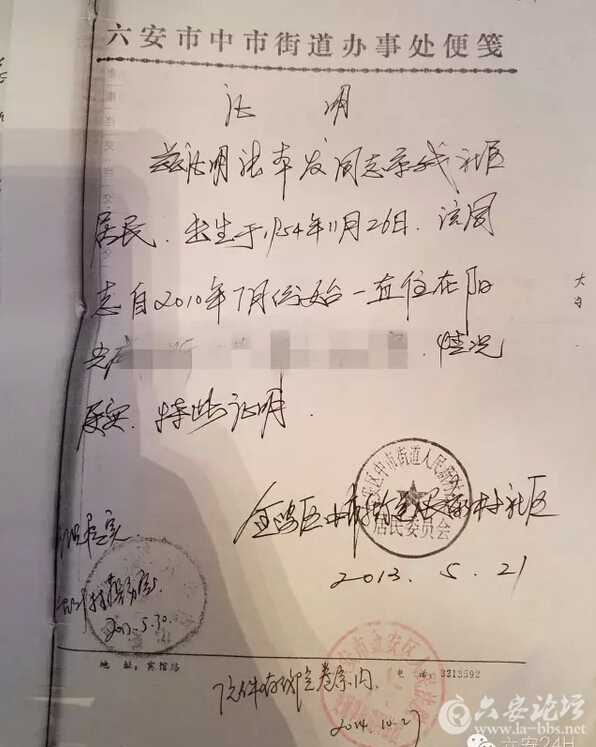 六安市中市街道办事处便笺
证 明
兹证明张本发同志系我社区
居民.出生于1954年11月26日.该同
志自2010年7月份始一直住在阳
光
.情况
属实.特此证明.
区中市街道人民
居民委员会
金安区中市街道人民 社区
2013.5.21
2013.5.30.
地 址:宾馆路
电 话:3313592
原件存 卷宗内.
2014.10.27
大
六安论坛
www.la-bbs.net
六安24H